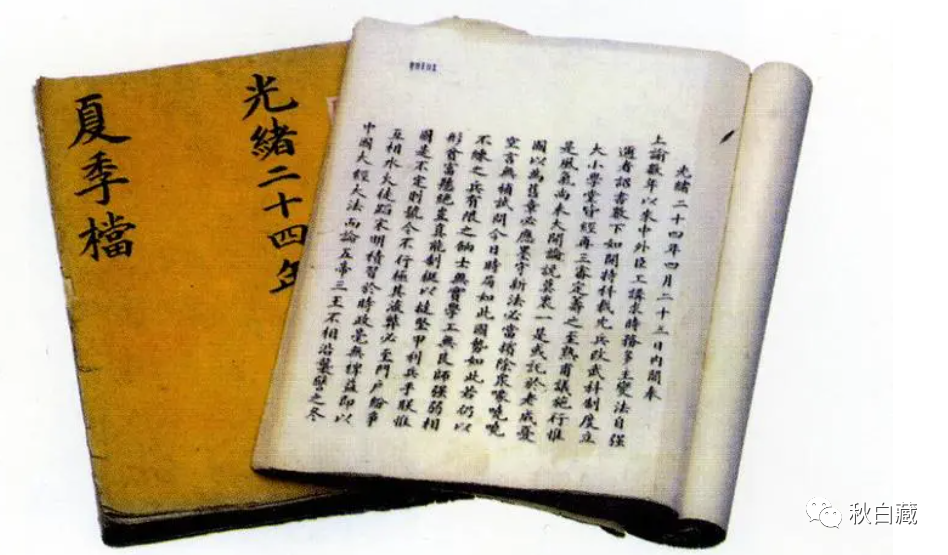 光緒二十四年四月二十三日內閣奉
上諭數年以來中外臣工講求時務多主變法自強
邇者詔書數下如開特科裁冗兵改武科制度立
大小學堂皆經再三審定籌之至熟甫議施行惟
是風氣尚未大開論說莫衷一是或託於老成憂
國以為舊章必應墨守新法必當擯除眾喙嘵嘵
空言無補試問今日時局如此國勢如此若仍以
不練之兵有限之餉士無實學工無良師強弱相
形貧富懸絕豈真能制梃以撻堅甲利兵乎朕惟
國是不定則號令不行極其流弊必至門戶紛爭
互相水火徒蹈宋明積習於時政毫無裨益即以
中國大經大法而論五帝三王不相沿襲譬之冬
光緒二十四年
夏季檔
秋白藏